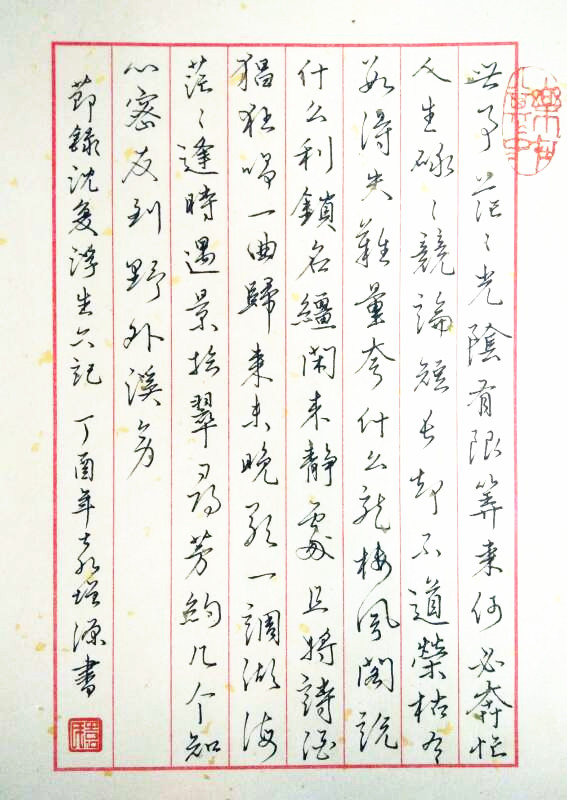 世事茫〻光陰有限算来何必奔忙
人生碌〻競論短長却不道榮枯有
数得失難量夸什么龍楼鳳閣説
什么利鎖名繮閑来静處且將詩酒
猖狂唱一曲歸来未晚歌一調湖海
茫〻逢時遇景拾翠尋芳約几个知
心密友到野外溪旁
節録沈复浮生六記 丁酉年 增源書